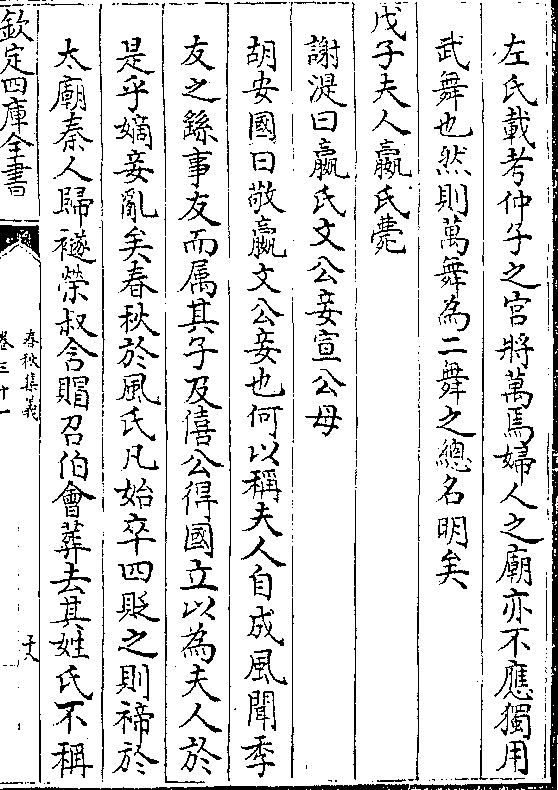 左氏載考仲子之宫將萬焉婦人之廟亦不應獨用
武舞也然則萬舞為二舞之總名明矣
戊子夫人嬴氏薨
謝湜曰嬴氏文公妾宣公母
胡安國曰敬嬴文公妾也何以稱夫人自成風聞季
友之繇事友而属其子及僖公得國立以為夫人於
是乎嫡妾亂矣春秋於風氏凡始卒四貶之則禘於
太廟秦人歸襚榮叔含賵召伯會葬去其姓氏不稱
欽定四庫全書
春秋集義
卷三十一
十八